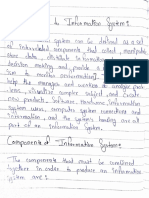 to Information Systems
system can be defined as a set
of Interrelated components, that collect, manipulate
store data, distribute Information to support
decision making and provide a feedback mechani-
sm to monitor performance. It may also
help the manager and workers to analyze prob-
lems, visualize complex subject, and Create
new products. Software, Hardware, Information
system users, computer system connections and
information, and the system's housing are all
part of an Information System.
Components of Information Systems
The components that must be combined
together in order to produce an Information
system are: